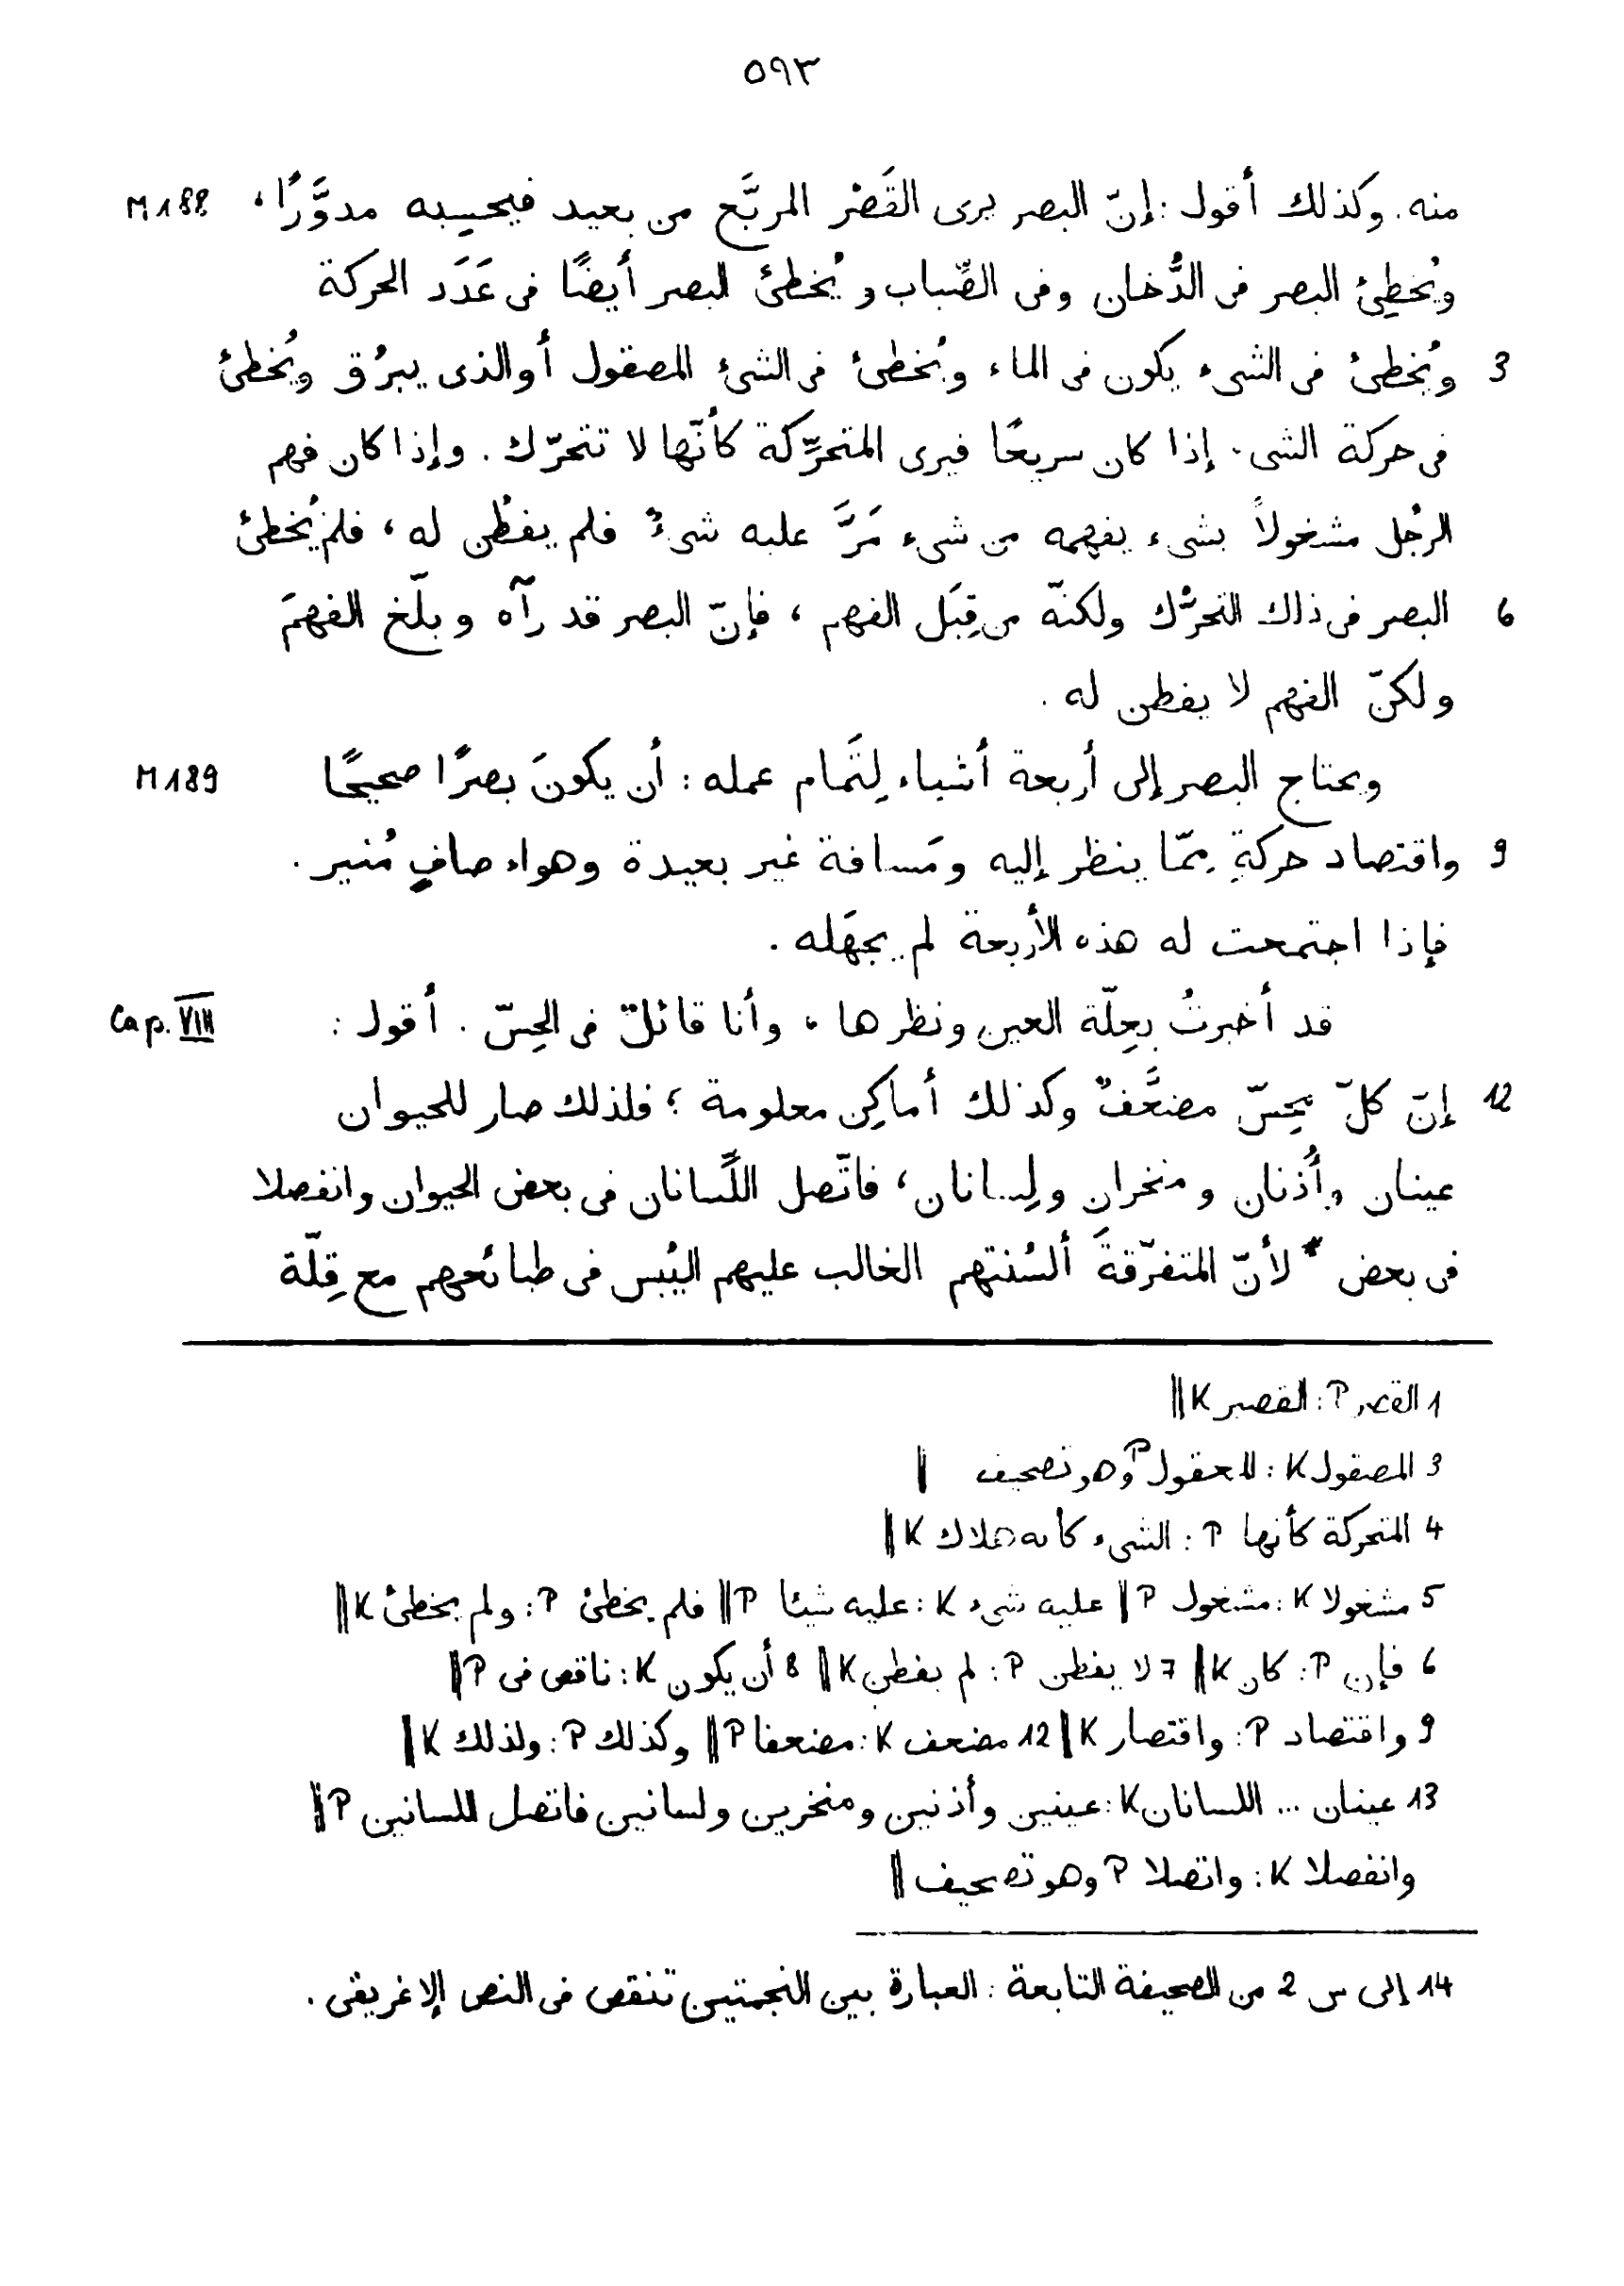 ٥٩٣
منه. وكذلك أقول: إنّ البصر يرى القَصْر المربَّع من بعيد فيحسِبه مدوَّرًا، M188
ويُخطِئ البصر فى الدُّخان وفى الضَّباب ويُخطئ البصر أيضًا فى عَدَد الحركة
3 ويُخطئ فى الشىء يكون فى الماء ويُخطئ فى الشىء المصقول أو الذى يبرُق ويُخطئ
فى حركة الشىء إذا كان سريعًا فيرى المتحرِّكة كأنّها لا تتحرّك. وإذا كان فهم
الرجُل مشغولاً بشىء يفهمه من شىء مَرَّ عليه شىءٌ فلم يفطُن له، فلم يُخطئ
6 البصر فى ذلك التحرُّك ولكنّه من قِبَل الفهم، فإنّ البصر قد رآه وبلّغ الفهمَ
ولكنّ الفهم لا يفطن له.
ويحتاج البصر إلى أربعة أشياء لِتَمام عمله: أن يكونَ بصرًا صحيحًا M189
9 واقتصاد حركةٍ مِمّا ينظر إليه ومَسافة غير بعيدة وهواء صافٍ مُنير.
فإذا اجتمعت له هذه الأربعة لم يجهَله.
قد أخبرتُ بعِلّة العين ونظرها، وأنا قائلٌ فى الحِسّ. أقول: Cap. VIII
12 إنّ كلّ مِحِسّ مضعَّفٌ وكذلك أماكِن معلومة؛ فلذلك صار للحيوان
عينان وأُذنان ومنخران ولِسانان، فاتّصل اللِّسانان فى بعض الحيوان وانفصلا
فى بعض * لأنّ المتفرّقةَ ألسُنتهم الغالب عليهم اليُبس فى طبائعهم مع قِلّة
1 القصر P: القصير K ||
3 المصقول K: المعقول P وهو تصحيف ||
4 المتحركة كأنها P: الشىء كأنه هلاك K ||
5 مشغولا K: مشغول P || عليه شىء K: عليه شيئا P || فلم يخطئ P: ولم يخطئ K ||
6 فإن P: كان K || 7 لا يفطن P: لم يفطن K || 8 أن يكون K: ناقص فى P ||
9 واقتصاد P: واقتصار K || 12 مضعف K: مضعفا P || وكذلك P: ولذلك K ||
13 عينان ... اللسانان K: عينين وأذنين ومنخرين ولسانين فاتصل اللسانين P ||
وانفصلا K: واتصلا P وهو تصحيف ||
14 إلى س 2 من الصحيفة التابعة: العبارة بين النجمتين تنقص فى النص الإغريقى.